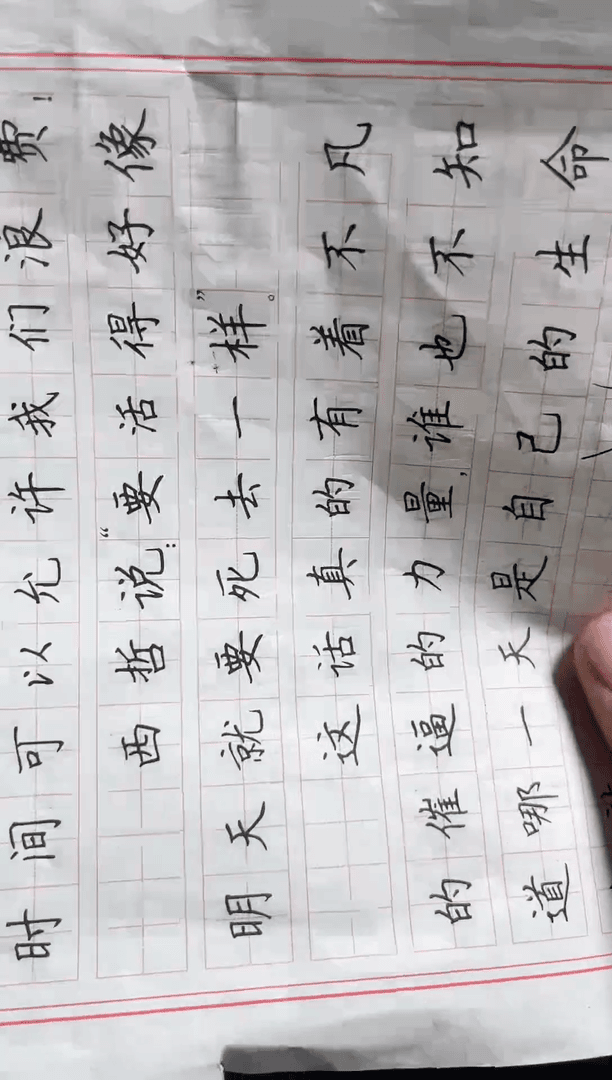 时间可以允许我们浪费！
西哲说：“要活得好像
明天就要死去一样”。
这话真的有着不凡
的催逼的力量，谁也不知
道哪一天是自己的生命